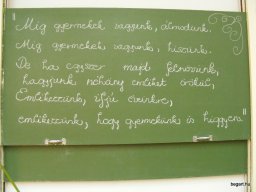 "Míg gyermekek vagyunk, álmodunk.
Míg gyermekek vagyunk, hiszünk.
De ha egyszer majd felnövünk,
hagyjunk néhány emléket örökül,
Emlékezzünk, ifjú éveinkre,
emlékezzünk, hogy gyermekünk is higgyen"
bogort.hu